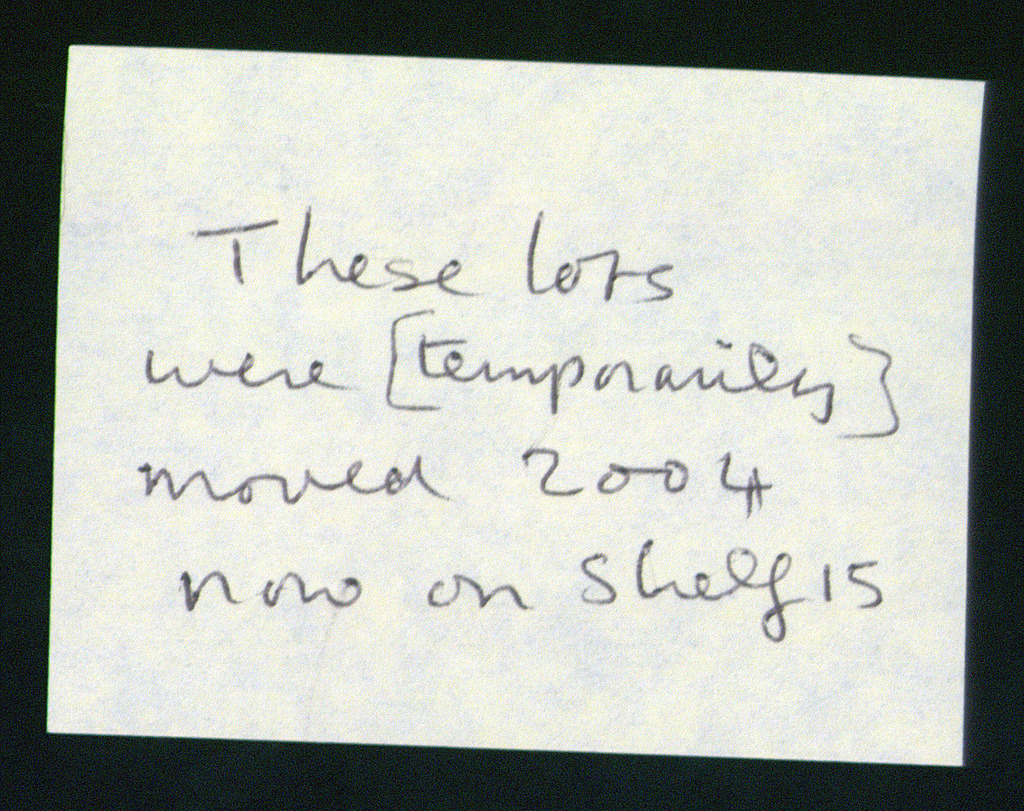 These lots
were [temporarily]
moved 2004
now on Shelf 15